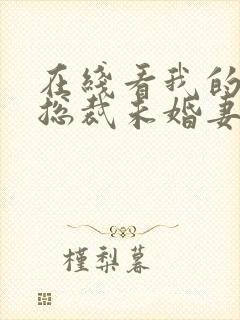 在綫看我的
总裁未婚妻
槿梨暮